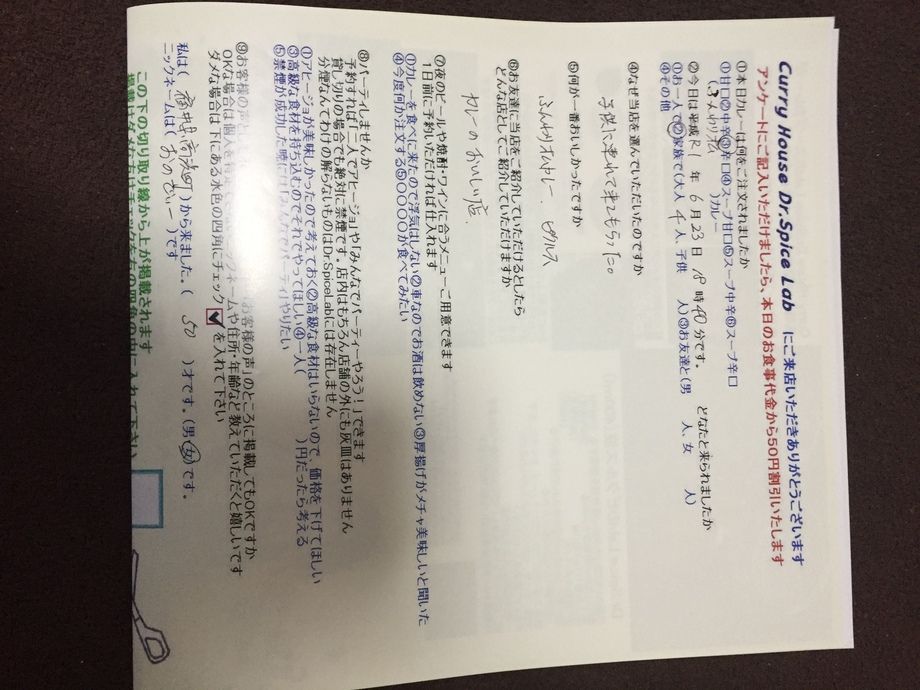 Curry House Dr.Spice Lab にご来店いただきありがとうございます
アンケートにご記入いただけましたら、本日のお食事代金から50円割引いたします
①本日カレーは何をご注文されましたか
①甘口②中辛③辛口④スープ甘口⑤スープ中辛⑥スープ辛口
(ふんわりオム )カレー
②今日は平成 R1 年 6 月 23 日 18 時 40 分です。 どなたと来られましたか
①お一人で②ご家族で(大人 4 人、子供 人)③お友達と(男 人、女 人)
④その他
④なぜ当店を選んでいただいたのですか
子供に連れて来てもらった。
⑤何が一番おいしかったですか
ふんわりオムカレー、ピクルス
⑥お友達に当店をご紹介していただけるとしたら
どんな店としてご紹介していただけますか
カレーのおいしい店、
⑦夜のビールや焼酎・ワインに合うメニューご用意できます
1日前に予約いただければ仕入れます
①カレーを食べに来たので浮気はしない②車なのでお酒は飲めない③厚揚げがメチャ美味しいと聞いた
④今度何か注文する⑤〇〇〇〇が食べてみたい
⑧パーティしませんか
予約すれば「二人でアヒージョ」や「みんなでパーティーやろう!」できます
貸し切りの場合でも絶対に禁煙です。店内はもちろん店舗の外にも灰皿はありません
分煙なんてわけの解らないものはDr.SpiceLabには存在しません
①アヒージョが美味しかったので考えておく②高級な食材はいらないので、価格を下げてほしい
③高級な食材を持ち込むのでそれでやってほしい④一人( )円だったら考える
⑤禁煙が成功した暁にはみんなでパーティやりたい
⑨お客様の声 お客様の声」のところに掲載してもOKですか
OKな場合は個人を特定 ニックネームや住所・年齢など教えていただくと嬉しいです
ダメな場合は下にある水色の四角にチェック を入れて下さい
私は( 福井県 )から来ました。( 50 )才です。(男・女)です。
ニックネームは( )です
この下の切り取り線から上が掲載されます